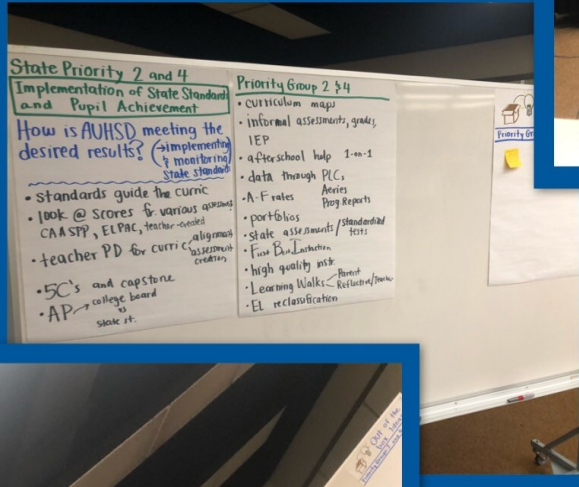 State Priority 2 and 4
Implementation of State Standards
and Pupil Achievement
How is AUHSD meeting the
desired results? (→implementing
& monitoring
State standards
• standards guide the curric
• look @ scores for various
CAASPP, ELPAC, teacher-created
• teacher PD for curric, alignment
assessment
creation
• 5C's and capstone
• AP → college board
vs
state st.
Priority Group 2 & 4
• curriculum maps
• informal assessments, grades,
IEP
• afterschool help 1-on-1
• data through PLCs
Aeries
• A-F rates
Prog Reports
• portfolios
• state assessments / standardized
tests
• First Best Instruction
• high quality instr.
• Learning Walks < Parent
Reflective/Teacher
• EL reclassification
Priority Gr
Out of the
box Ideas